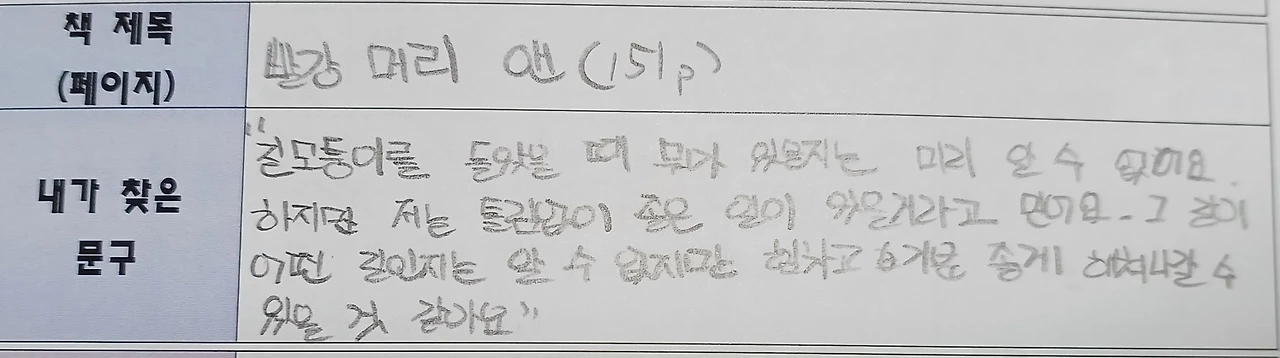 책 제목
(페이지)
빨강 머리 앤 (151p)
내가 찾은
문구
"길모퉁이를 돌았을 때 뭐가 있을지는 미리 알 수 없어요.
하지만 저는 틀림없이 좋은 일이 있을거라고 믿어요. 그 길이
어떤 길인지는 알 수 없지만 힘차고 기분 좋게 헤쳐나갈 수
있을 것 같아요"